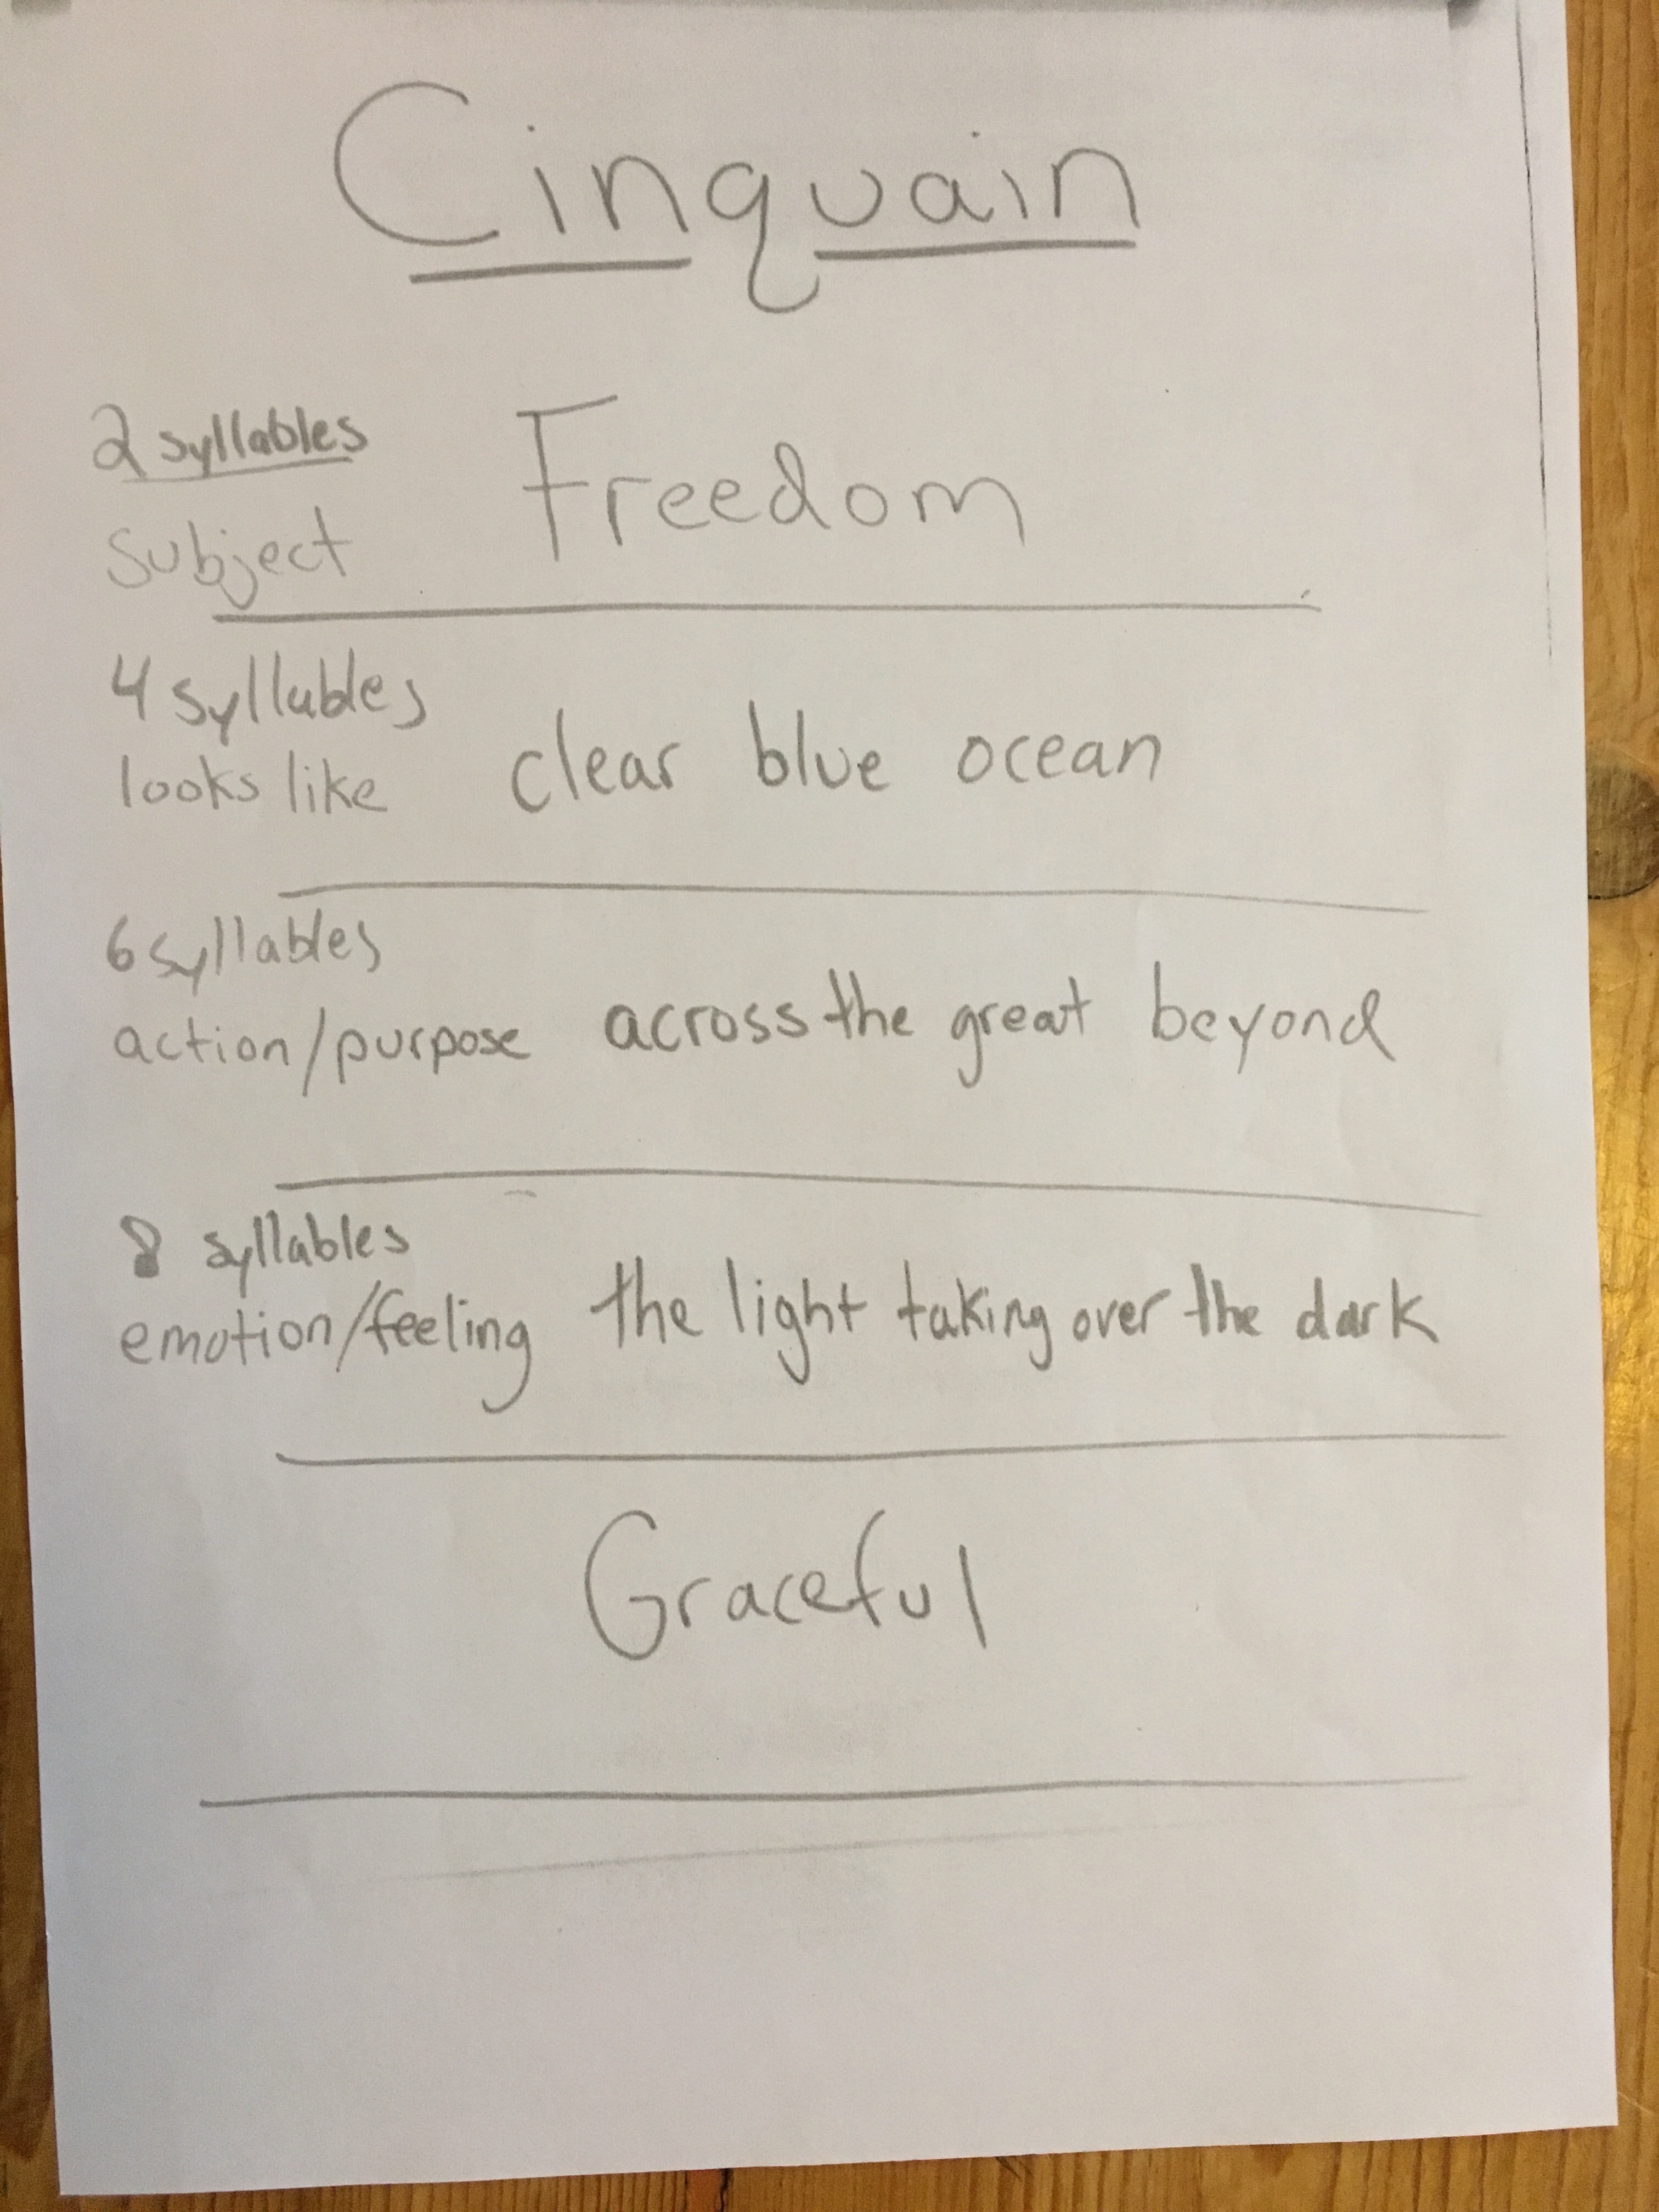 Cinquain
2 syllables
subject
Freedom
4 syllables
looks like
clear blue ocean
6 syllables
action/purpose
across the great beyond
8 syllables
emotion/feeling
the light taking over the dark
Graceful